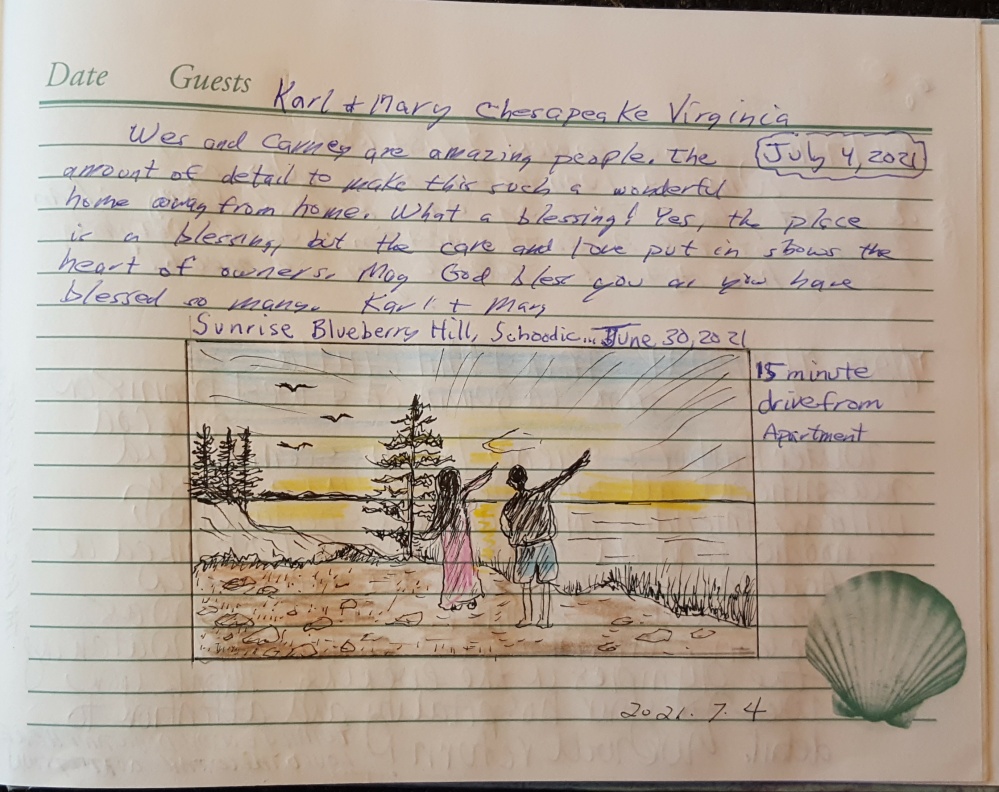 Date Guests Karl + Mary Chesapeake Virginia
Wes and Carney are amazing people. The
July 4, 2021
amount of detail to make this such a wonderful
home away from home. What a blessing! Yes, the place
is a blessing, but the care and love put in shows the
heart of owners. May God bless you as you have
blessed so many. Karl + Mary
Sunrise Blueberry Hill, Schoodic... June 30, 2021
15 minute
drive from
Apartment
2021. 7. 4